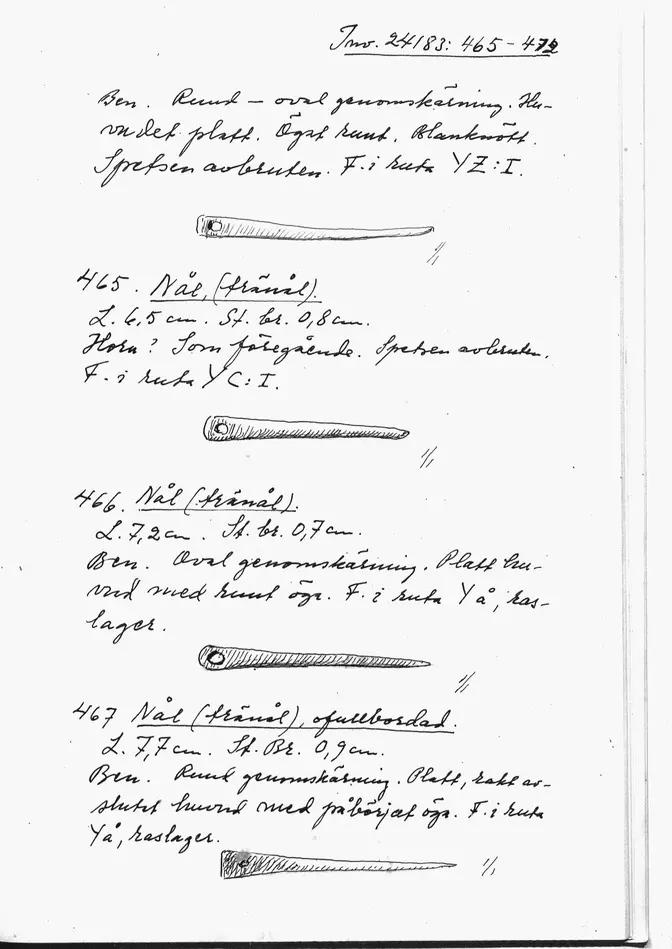 Inv. 24183: 465-472
Ben. Rund – oval genomskärning. Hu-
vudet platt. Ögat runt. Blanknött.
Spetsen avbruten. F. i ruta YZ:I.
1/1
465. Nål, (tränål).
L. 6,5 cm. St. br. 0,8 cm.
Horn? Som föregående. Spetsen avbruten.
F. i ruta YC:I.
1/1
466. Nål (tränål).
L. 7,2 cm. St. br. 0,7 cm.
Ben. Oval genomskärning. Platt hu-
vud med runt öga. F. i ruta Yå, ras-
lager.
1/1
467 Nål (tränål), ofullbordad.
L. 7,7 cm. St. Br. 0,9 cm.
Ben. Rund genomskärning. Platt, rakt av-
slutet huvud med påbörjat öga. F. i ruta
Yå, raslager.
1/1